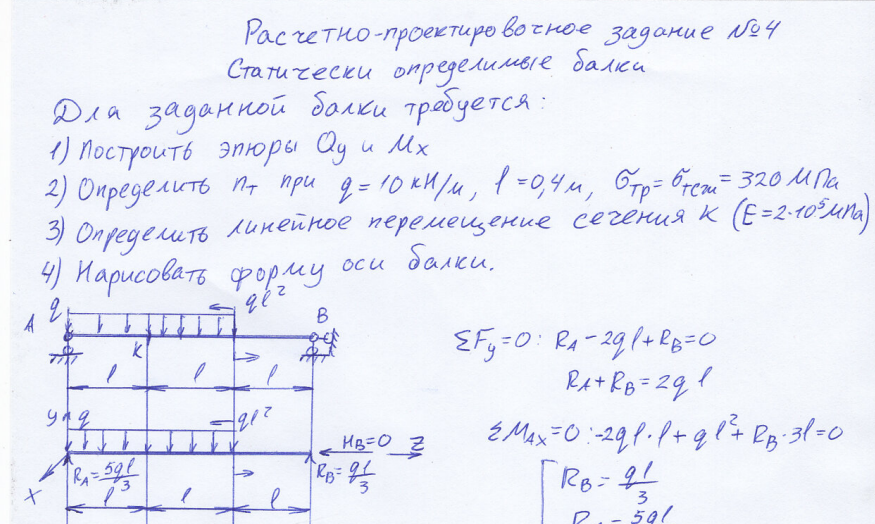 Расчетно-проектировочное задание №4
Статически определимые балки
Для заданной балки требуется:
1) Построить эпюры Qy и Mx
2) Определить nт при q=10кН/м, l=0,4м, σтр=σтсж=320 МПа
3) Определить линейное перемещение сечения К (E=2·10⁵МПа)
4) Нарисовать форму оси балки.
q ql²
A B
K
l l l
ΣFy=0: RA-2ql+RB=0
RA+RB=2ql
y q ql²
HB=0 z
ΣMAx=0:-2ql·l+ql²+RB·3l=0
x RA=5ql/3 RB=ql/3
l l l
RB=ql/3
RA=5ql